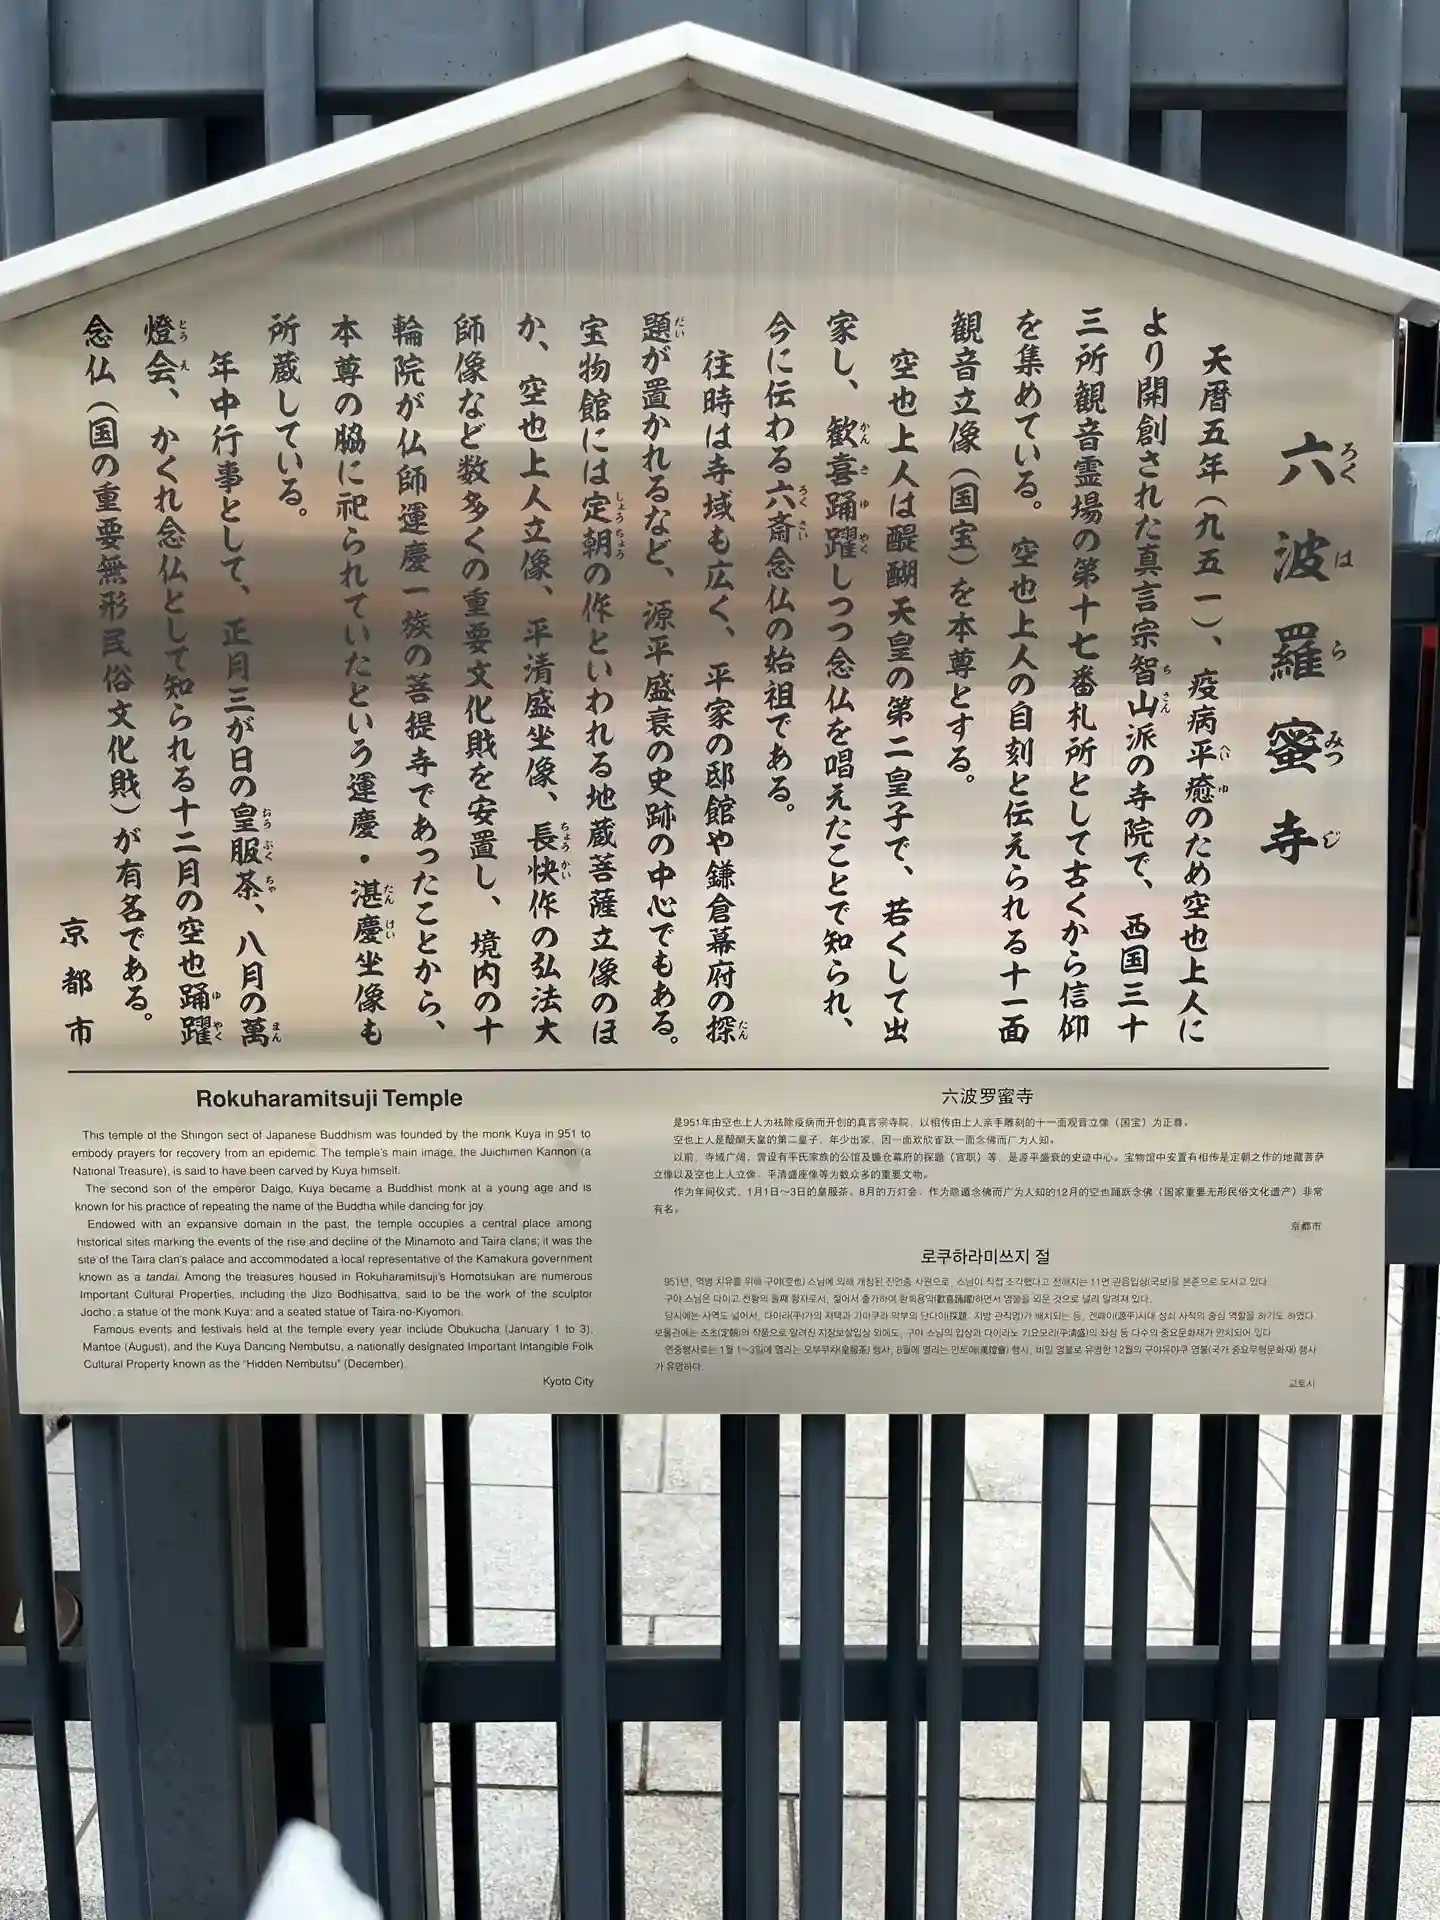 六波羅蜜寺
ろくはらみつじ
天暦五年（九五一）、疫病平癒のため空也上人に
より開創された真言宗智山派の寺院で、西国三十
三所観音霊場の第十七番札所として古くから信仰
を集めている。空也上人の自刻と伝えられる十一面
観音立像（国宝）を本尊とする。
空也上人は醍醐天皇の第二皇子で、若くして出
家し、歓喜踊躍しつつ念仏を唱えたことで知られ、
今に伝わる六斎念仏の始祖である。
往時は寺域も広く、平家の邸館や鎌倉幕府の探
題が置かれるなど、源平盛衰の史跡の中心でもある。
宝物館には定朝の作といわれる地蔵菩薩立像のほ
か、空也上人立像、平清盛坐像、長快作の弘法大
師像など数多くの重要文化財を安置し、境内の十
輪院が仏師運慶一族の菩提寺であったことから、
本尊の脇に祀られていたという運慶・湛慶坐像も
所蔵している。
年中行事として、正月三が日の皇服茶、八月の萬
燈会、かくれ念仏として知られる十二月の空也踊躍
念仏（国の重要無形民俗文化財）が有名である。
京都市
Rokuharamitsuji Temple
This temple of the Shingon sect of Japanese Buddhism was founded by the monk Kuya in 951 to
embody prayers for recovery from an epidemic. The temple's main image, the Juichimen Kannon (a
National Treasure), is said to have been carved by Kuya himself.
The second son of the emperor Daigo, Kuya became a Buddhist monk at a young age and is
known for his practice of repeating the name of the Buddha while dancing for joy.
Endowed with an expansive domain in the past, the temple occupies a central place among
historical sites marking the events of the rise and decline of the Minamoto and Taira clans; it was the
site of the Taira clan's palace and accommodated a local representative of the Kamakura government
known as a tandai. Among the treasures housed in Rokuharamitsuji's Homotsukan are numerous
Important Cultural Properties, including the Jizo Bodhisattva, said to be the work of the sculptor
Jocho, a statue of the monk Kuya; and a seated statue of Taira-no-Kiyomori.
Famous events and festivals held at the temple every year include Obukucha (January 1 to 3),
Mantoe (August), and the Kuya Dancing Nembutsu, a nationally designated Important Intangible Folk
Cultural Property known as the "Hidden Nembutsu" (December).
Kyoto City
六波罗蜜寺
是951年由空也上人为祛除疫病而开创的真言宗寺院，以相传由上人亲手雕刻的十一面观音立像（国宝）为正尊。
空也上人是醍醐天皇的第二皇子，年少出家，因一面欢欣雀跃一面念佛而广为人知。
以前，寺域广阔，曾设有平氏家族的公馆及镰仓幕府的探题（官职）等，是源平盛衰的史迹中心。宝物馆中安置有相传是定朝之作的地藏菩萨
立像以及空也上人立像、平清盛座像等为数众多的重要文物。
作为年间仪式，1月1日～3日的皇服茶、8月的万灯会、作为隐遁念佛而广为人知的12月的空也踊跃念佛（国家重要无形民俗文化遗产）非常
有名。
京都市
로쿠하라미쓰지 절
951년, 역병 치유를 위해 구야(空也) 스님에 의해 개창된 진언종 사원으로, 스님이 직접 조각했다고 전해지는 11면 관음입상(국보)을 본존으로 모시고 있다.
구야 스님은 다이고 천황의 둘째 황자로서, 젊어서 출가하여 환희용약(歡喜踊躍)하면서 염불을 외운 것으로 널리 알려져 있다.
당시에는 사역도 넓어서, 다이라(平)가의 저택과 가마쿠라 막부의 단다이(探題, 지방 관직명)가 배치되는 등, 겐페이(源平)시대 성쇠 사적의 중심 역할을 하기도 하였다.
보물관에는 조초(定朝)의 작품으로 알려진 지장보살입상 외에도, 구야 스님의 입상과 다이라노 기요모리(平清盛)의 좌상 등 다수의 중요문화재가 안치되어 있다.
연중행사로는 1월 1～3일에 열리는 오부쿠차(皇服茶) 행사, 8월에 열리는 만토에(萬燈會) 행사, 비밀 염불로 유명한 12월의 구야유야쿠 염불(국가 중요무형문화재) 행사
가 유명하다.
교토시